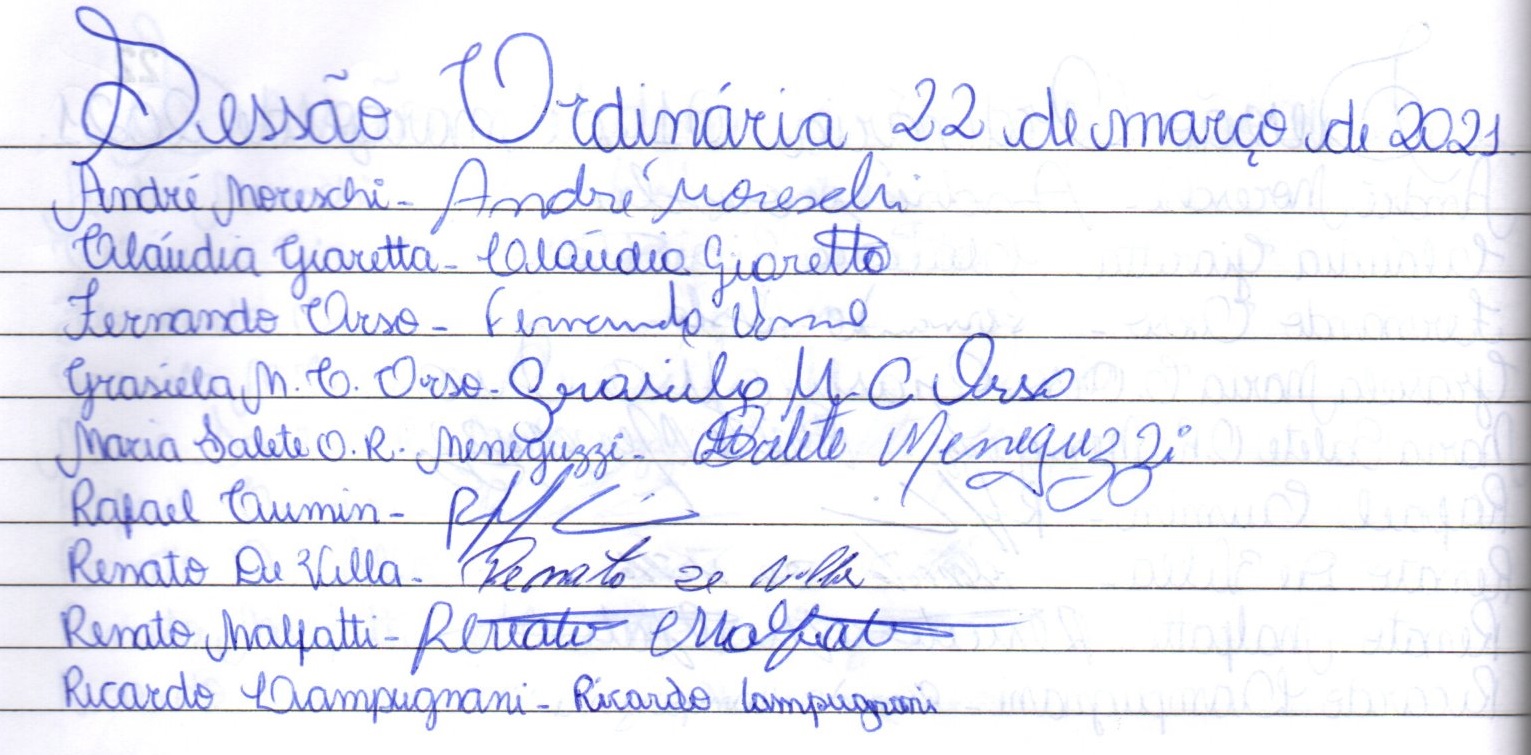 Sessão Ordinária 22 de março de 2021
André Moreschi - André Moreschi
Claúdia Giaretta - Claúdia Giaretta
Fernando Orso - Fernando Orso
Grasiela M. C. Orso - Grasiela M. C. Orso
Maria Salete O. R. Meneguzzi - Salete Meneguzzi
Rafael Cumin -
Renato De Villa - Renato De Villa
Renato Malfatti - Renato Malfatti
Ricardo Lampugnani - Ricardo Lampugnani